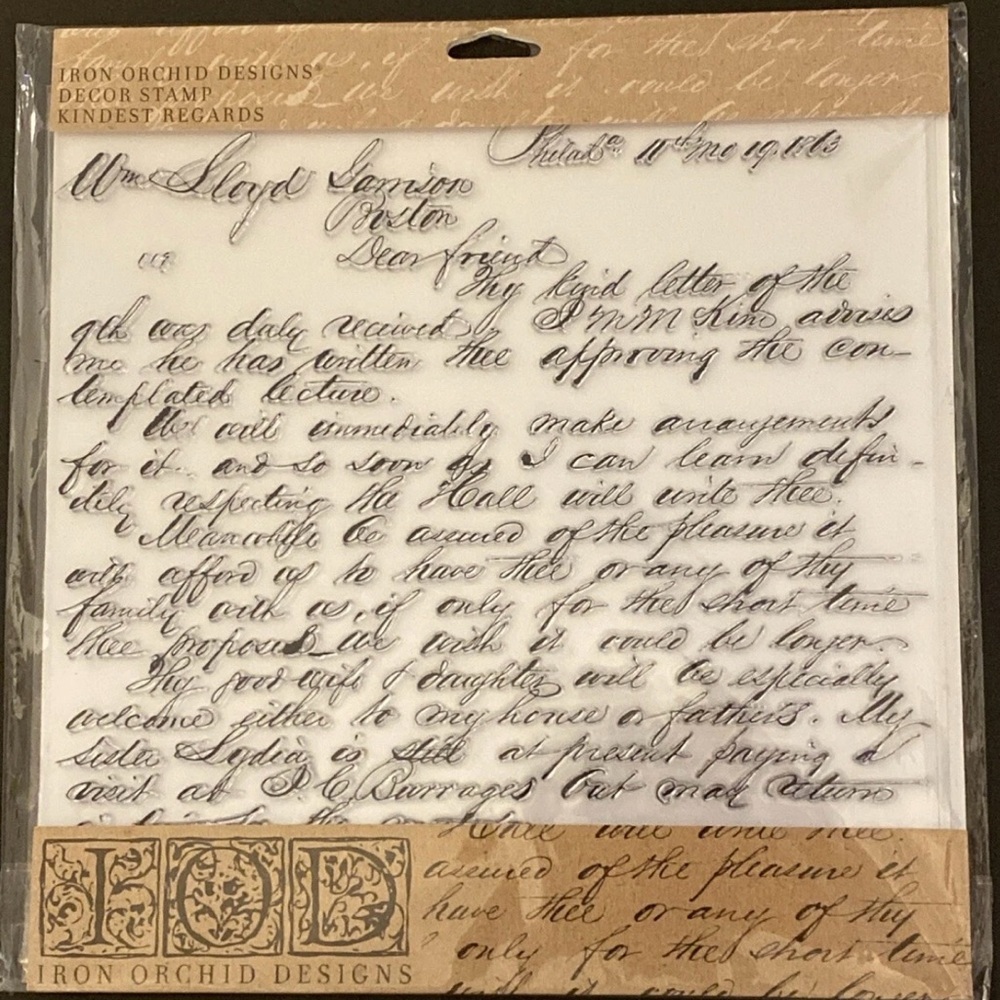 IRON ORCHID DESIGNS®
DECOR STAMP
KINDEST REGARDS
Philada 10th Mo 19. 1863
Wm Lloyd Garrison
Boston
Dear friend
Thy kind letter of the
9th was duly received, J M M Kim advises
me he has written thee approving the con-
templated lecture.
We will immediately make arrangements
for it and so soon as I can learn defin-
itely respecting the Hall will write thee.
Meanwhile be assured of the pleasure it
will afford us to have thee or any of thy
family with us, if only for the short time
thee proposed we wish it could be longer
Thy good wife & daughter will be especially
welcome either to my house or fathers. My
sister Lydia is still at present paying a
visit at J. C. Burrages but may return
Hall will write thee.
assured of the pleasure it
have thee or any of thy
only for the short time
wish it could be longer
IOD
IRON ORCHID DESIGNS